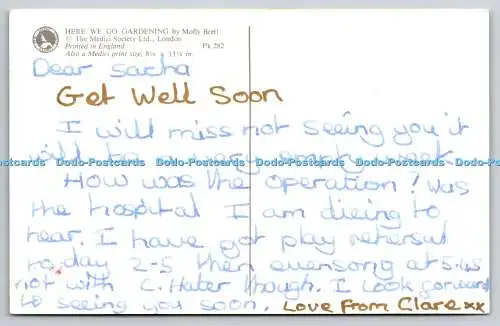 HERE WE GO GARDENING by Molly Brett
© The Medici Society Ltd., London
Printed in England Pk 282
Also a Medici print size, 8⅛ x 13⅛ in.
Dear Sacha
Get Well Soon
I will miss not seeing you it
will be very empty
Dodo-Postcards Dodo-Postcards Dodo-Postcards Dodo-Postcards Dodo-Postcards
How was the operation? Was
the hospital I am dieing to
hear. I have got play rehersal
today 2-5 then evensong at 5.45
not with C. Hater though. I look forward
to seeing you soon. Love From Clare xx